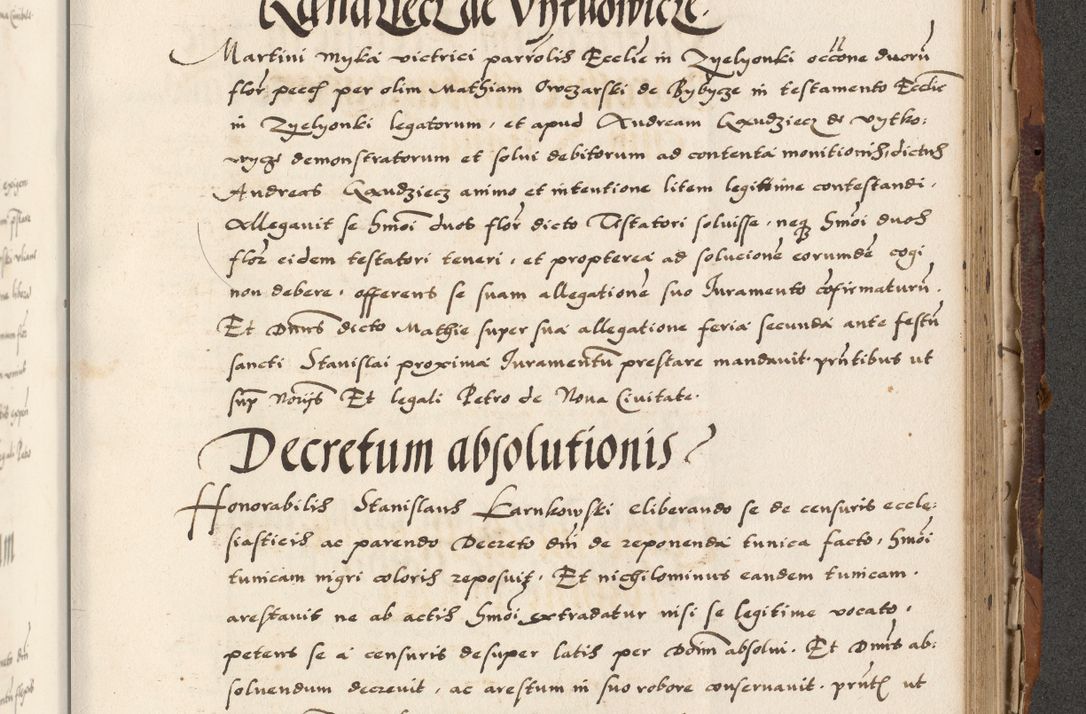 Kandziecz de Vytkowicze.
Martini Myka victrici parrolis Ecclie in Zyelyonki occõne duorũ
flor pecch per olim Mathiam Owczarski de Bybycze in testamento Ecclie
in Zyelyonki legatorum, et apud Andream Kandziecz de Vytko:
wycze demonstratorum et solui debitorum ad contenta monitionis, dictus
Andreas Kandziecz animo et intentione litem legittime contestandi,
Allegauit se hmõi duos flor dicto Testatori soluisse, neq hmõi duos
flor eidem testatori teneri, et propterea ad solucionẽ eorumdẽ cogi
non debere, offerens se suam allegationẽ suo Iuramento cõfirmaturũ.
Et Dnus dicto Mathie super sua allegatione feria secunda ante festũ
sancti Stanislai proxima Iuramentũ prestare mandauit. pñtibus ut
sup Norijs Et legali Petro de Noua Ciuitate.
Decretum absolutionis
Honorabilis Stanislaus Karnkowski eliberando se de censuris eccle:
siasticis ac parendo Decreto dñi de reponenda tunica facto, hmõi
tunicam nigri coloris reposuit, Et nichilominus eandem tunicam.
arestauit ne ab actis hmõi extradatur nisi se legitime vocato,
petens se a censuris desuper latis per Ddnm absolui. Et Dnus ab:
soluendum decreuit, ac arestum in suo robore conseruauit. pñtt ut